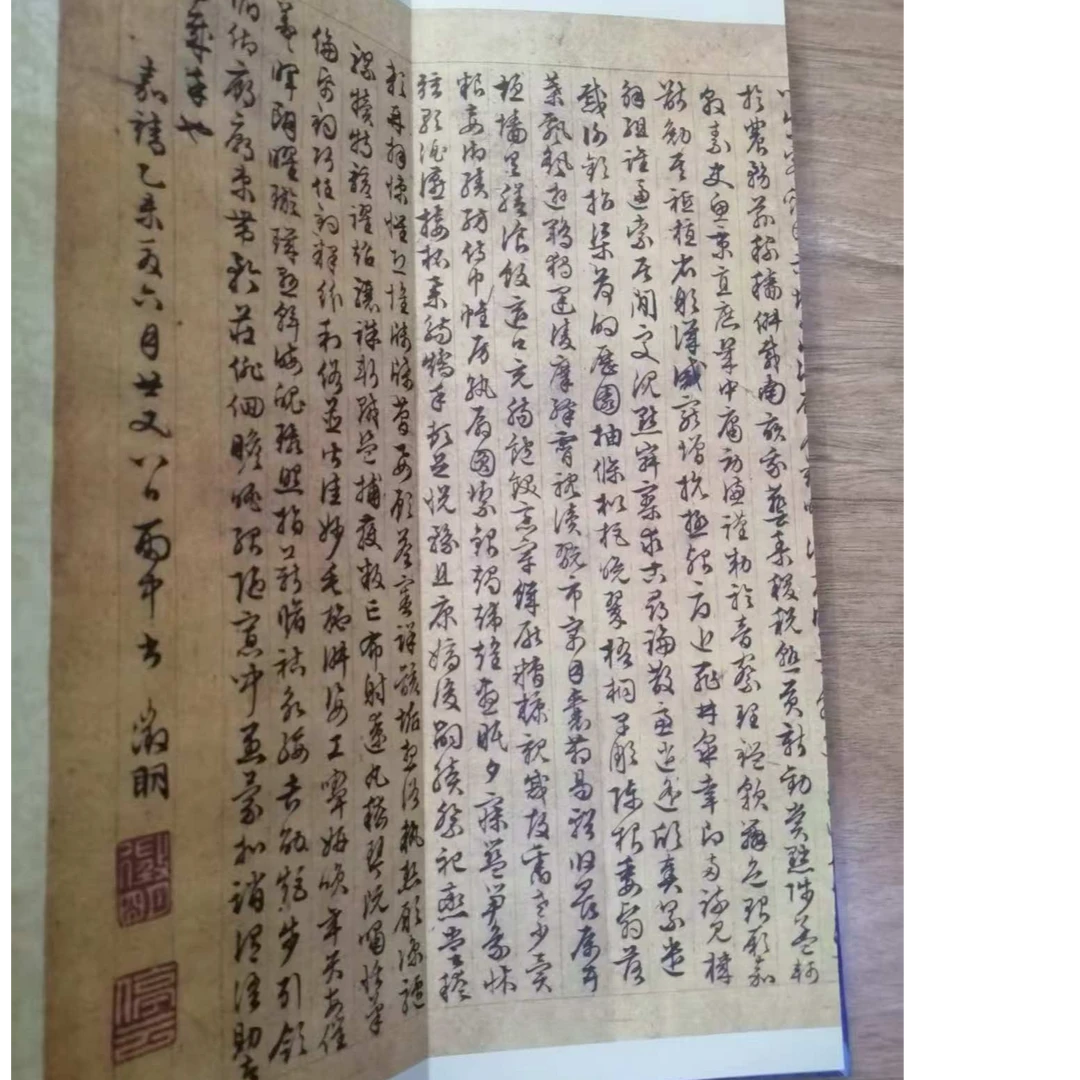 於農務茲稼穡俶載南畝我藝黍稷稅熟貢新勸賞黜陟孟軻
敦素史魚秉直庶幾中庸勞謙謹勑聆音察理鑑貌辨色貽厥嘉
猷勉其祗植省躬譏誡寵增抗極殆辱近恥林皋幸即兩疏見機
解組誰逼索居閒處沉默寂寥求古尋論散慮逍遙欣奏累遣
慼謝歡招渠荷的歷園抽條枇杷晚翠梧桐早彫陳根委翳落
葉飄颻遊鵾獨運凌摩絳霄耽讀翫市寓目囊箱易輶攸畏屬耳
垣墻具膳飡飯適口充腸飽飫烹宰饑厭糟糠親戚故舊老少異
粮妾御績紡侍巾帷房紈扇圓潔銀燭煒煌晝眠夕寐藍笋象床
弦歌酒讌接杯舉觴矯手頓足悅豫且康嫡後嗣續祭祀蒸嘗稽
顙再拜悚懼恐惶牋牒簡要顧答審詳骸垢想浴執熱願涼驢
騾犢特駭躍超驤誅斬賊盜捕獲叛亡布射遼丸嵇琴阮嘯恬筆
倫紙鈞巧任釣釋紛利俗並皆佳妙毛施淑姿工顰妍笑年矢每催
羲暉朗曜璇璣懸斡晦魄環照指薪脩祜永綏吉劭矩步引領
俯仰廊廟束帶矜莊徘徊瞻眺孤陋寡聞愚蒙等誚謂語助者
哉乎也
嘉靖乙未夏六月廿又八日雨中書 徵明